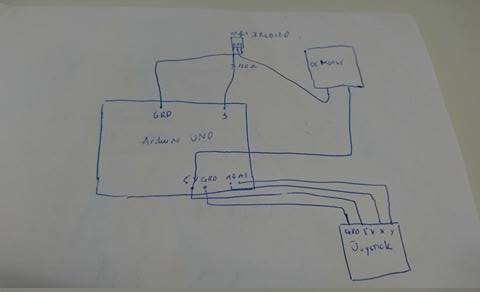 DC Motor
GRD
3
Arduino UNO
5V GRD A0 A1
GRD 5V X Y
Joystick